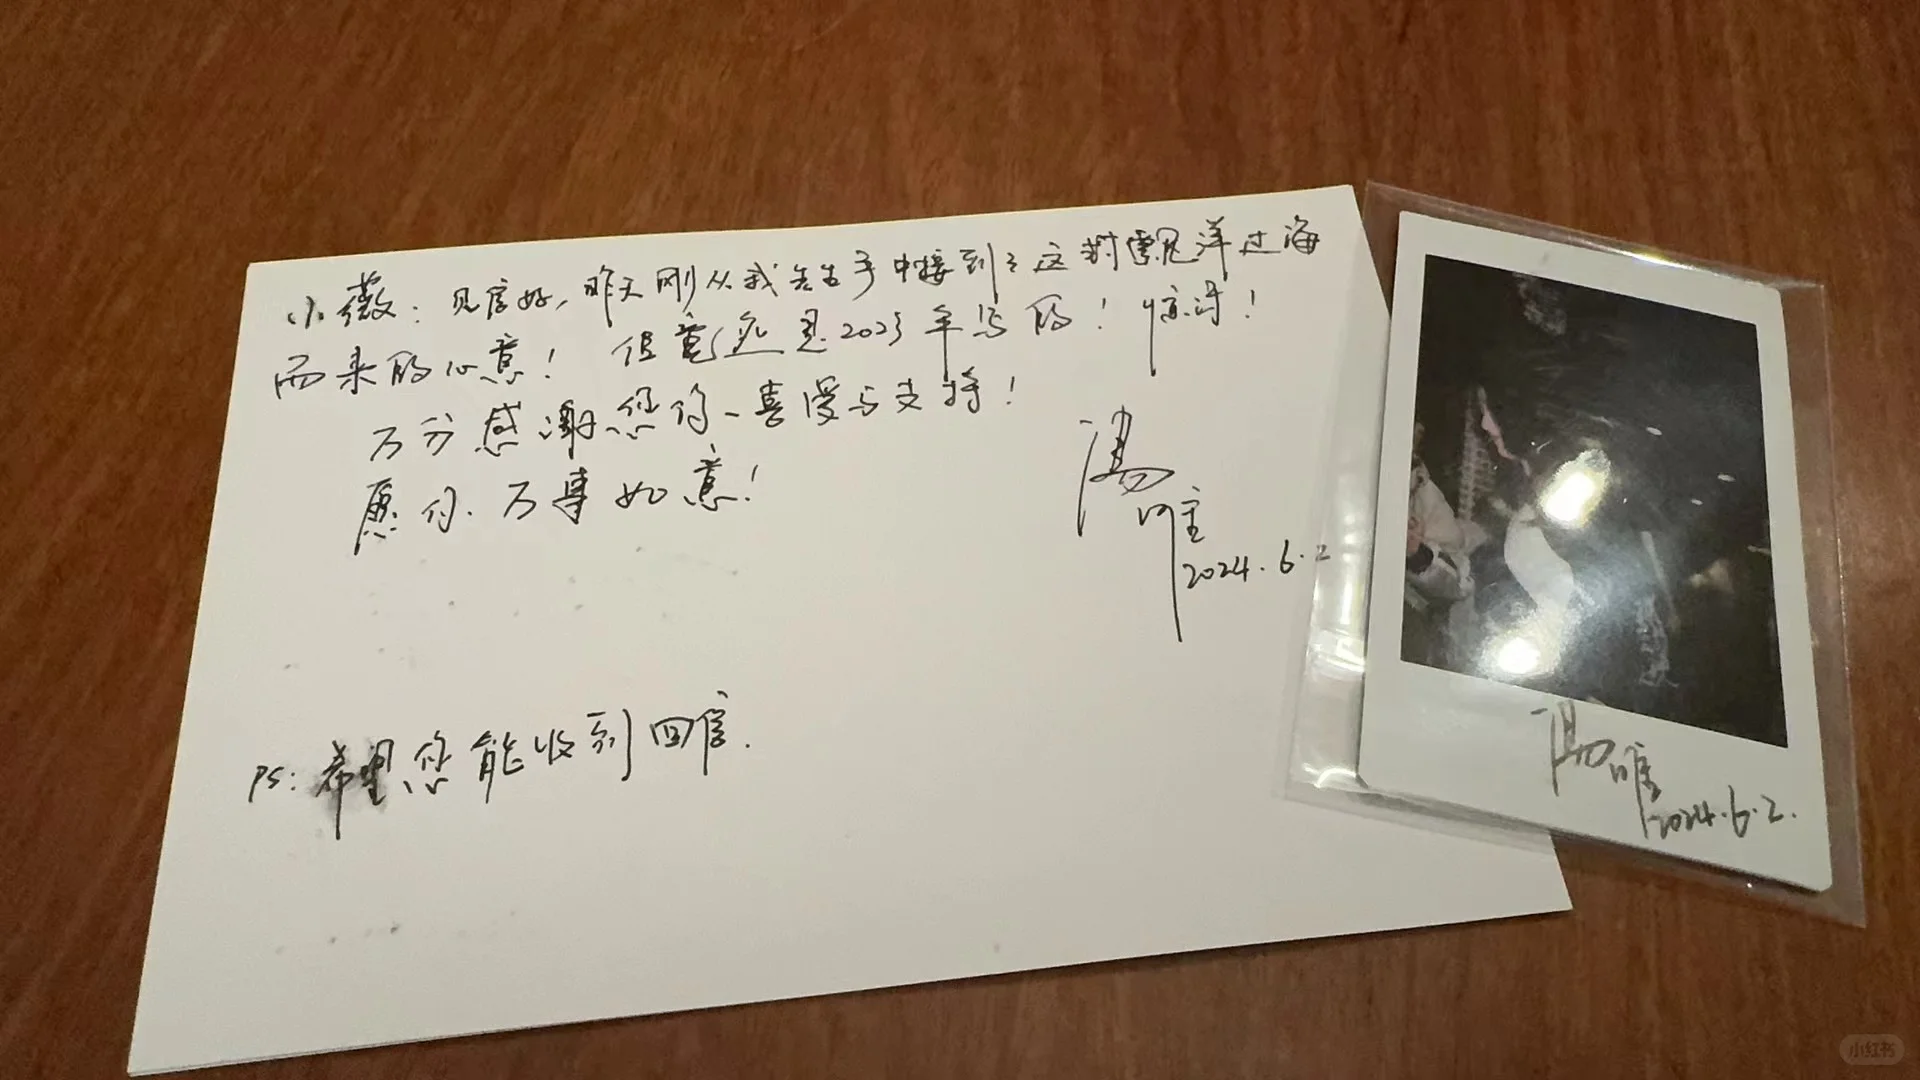 小薇：见信好，昨天刚从我先生手中接到了这封飘洋过海
而来的心意！但竟然是2023年写的！惊讶！
万分感谢您的喜爱与支持！
愿你万事如意！
汤唯
2024.6.2
PS：希望您能收到回信.
汤唯
2024.6.2.
小红书